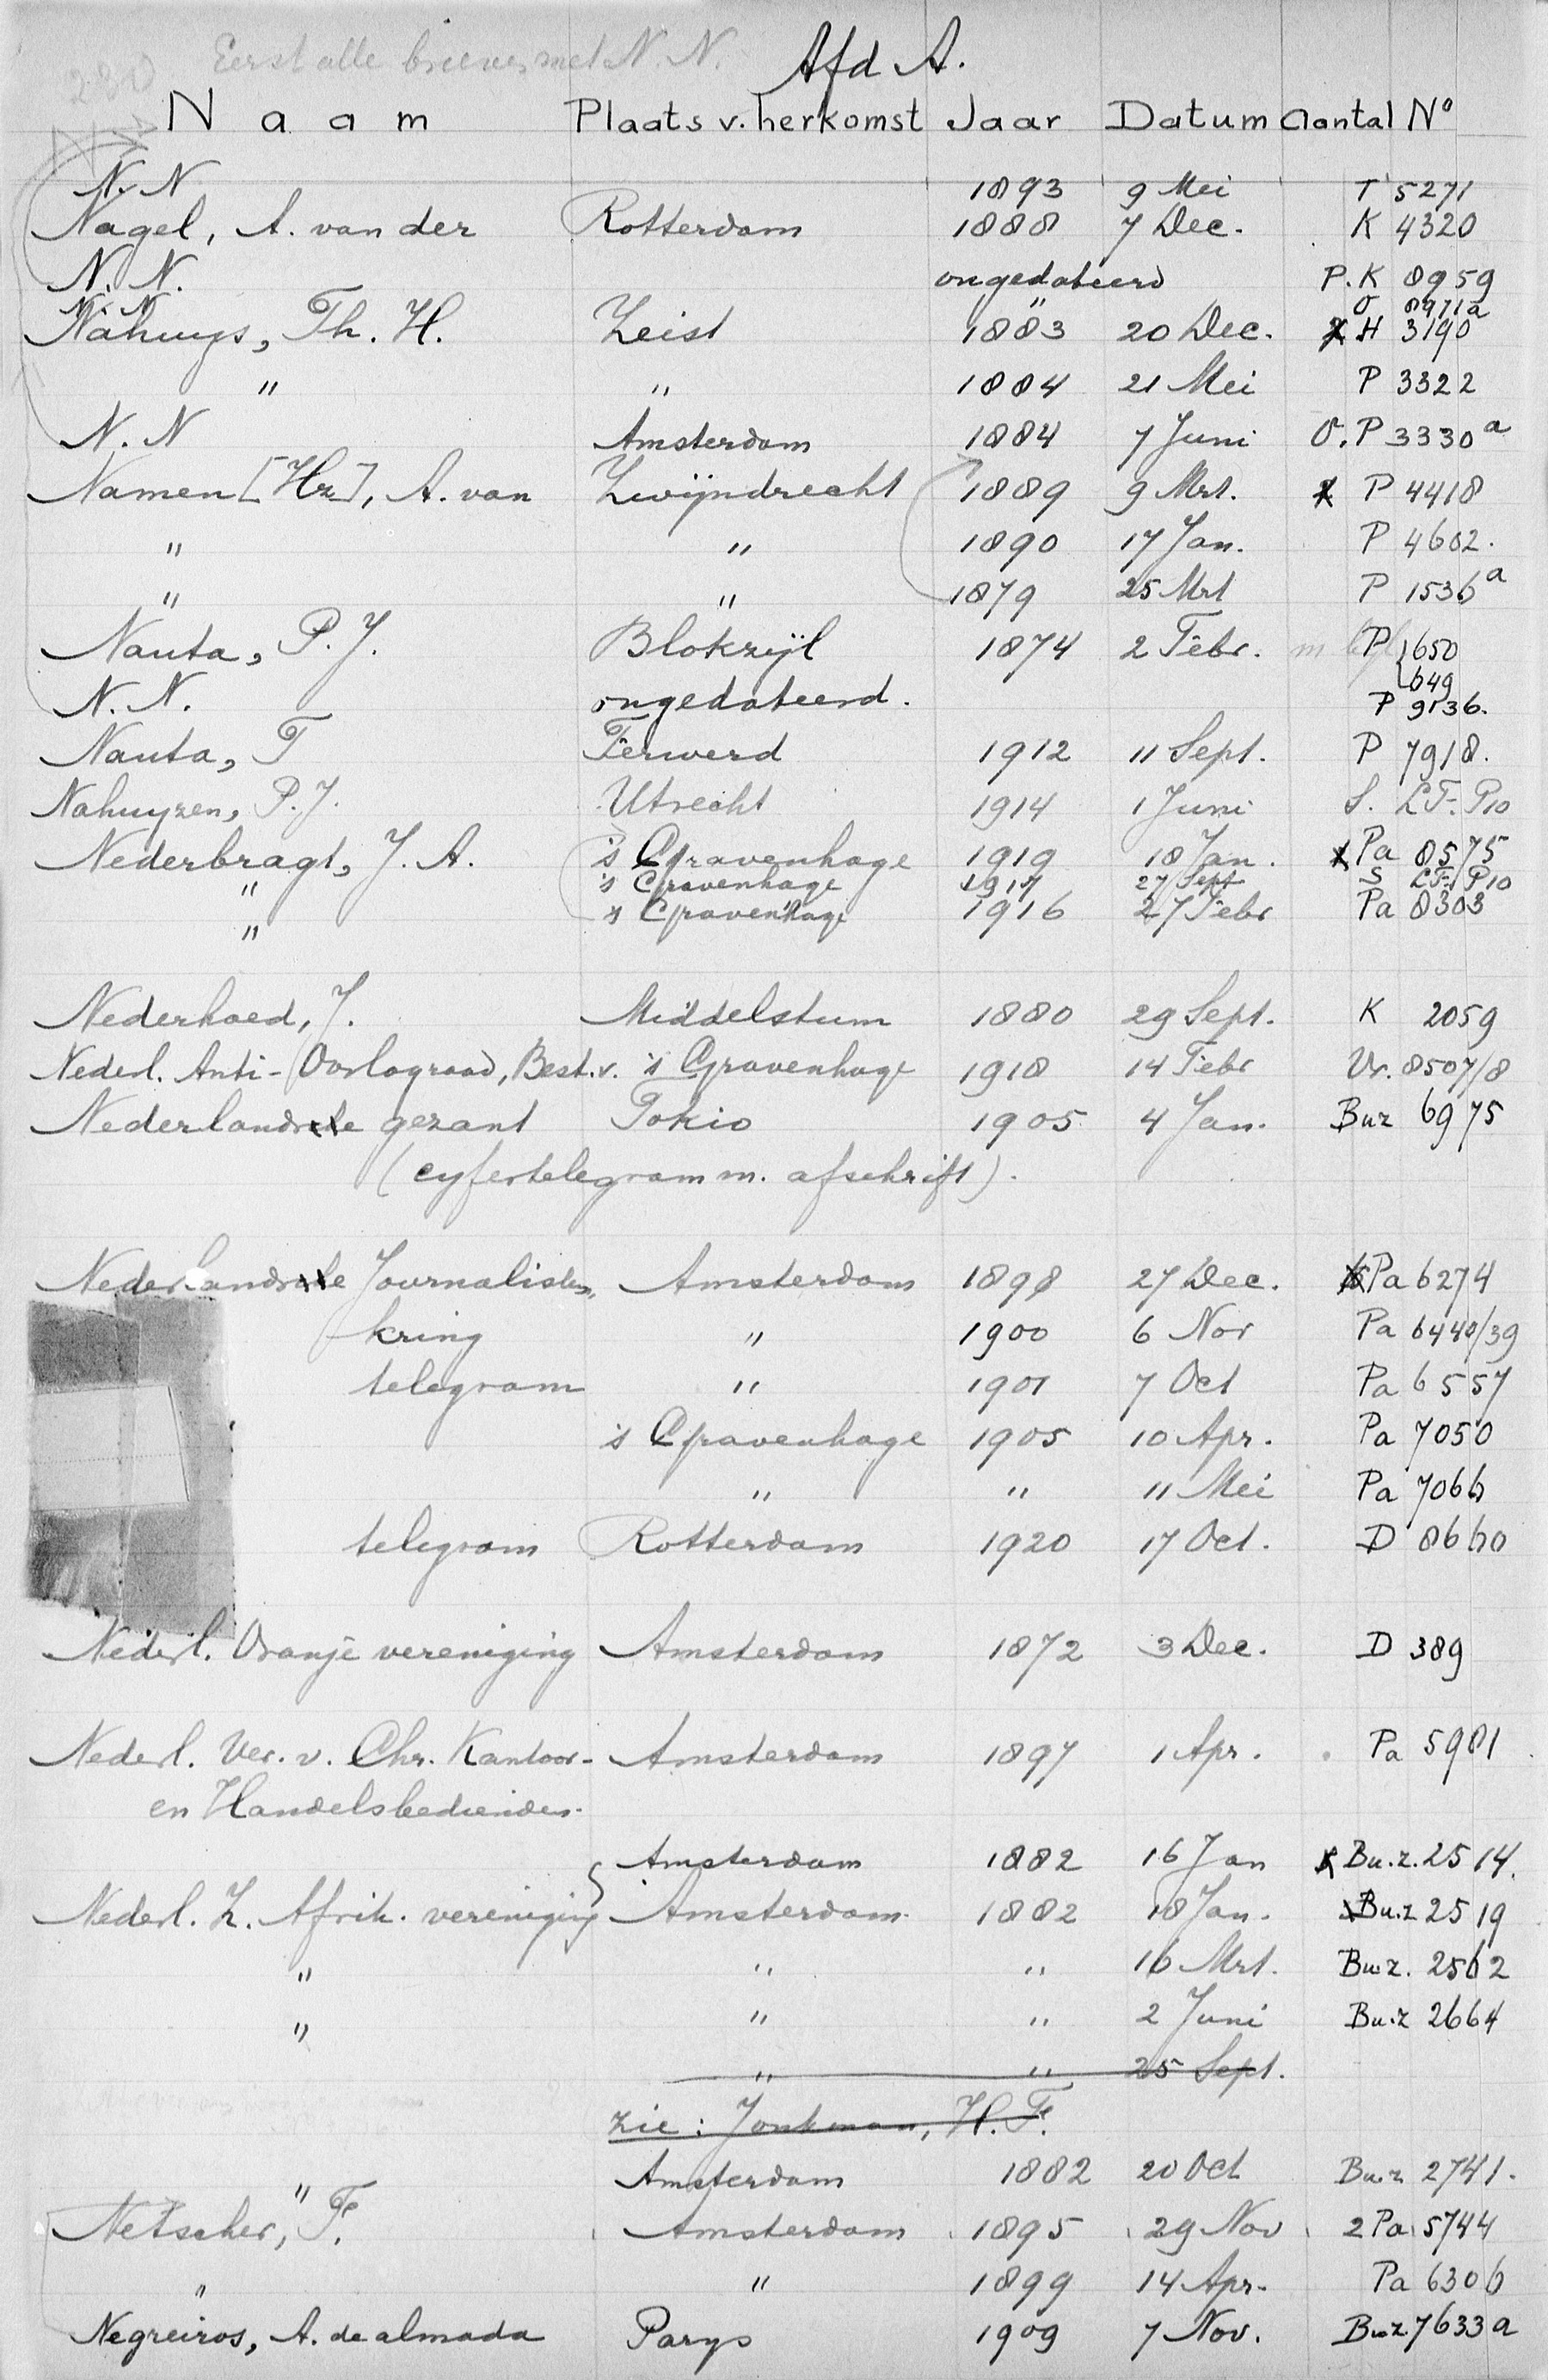 Eerst alle brieven met N. N. Afd A.
230
Naam Plaats v. herkomst Jaar Datum Aantal Nº
N. N 1893 9 Mei T 5271
Nagel, A. van der Rotterdam 1888 7 Dec. K 4320
N. N. ongedateerd P. K 8959
N. N. " O 8971a
Nahuys, Th. H. Zeist 1883 20 Dec. H 3190
" " 1884 21 Mei P 3322
N. N Amsterdam 1884 7 Juni O. P 3330a
Namen [Hz], A. van Zwijndrecht 1889 9 Mrt. P 4418
" " 1890 17 Jan. P 4602.
" " 1879 25 Mrt P 1536a
Nauta, P. J. Blokzijl 1874 2 Febr. P 650
649
N. N. ongedateerd. P 9136.
Nauta, T Ferwerd 1912 11 Sept. P 7918.
Nahuyzen, P. J. Utrecht 1914 1 Juni S. LF. P10
Nederbragt, J. A. 's Gravenhage 1919 18 Jan. Pa 8575
" 's Gravenhage 1917 27 Sept S LF. P10
" 's Gravenhage 1916 27 Febr Pa 8303
Nederhoed, J. Middelstum 1880 29 Sept. K 2059
Nederl. Anti-Oorlograad, Best. v. 's Gravenhage 1918 14 Febr Vr. 8507/8
Nederlandsche gezant Tokio 1905 4 Jan. Buz 6975
(cyfertelegram m. afschrift).
Nederlandsche Journalisten Amsterdam 1898 27 Dec. Pa 6274
kring " 1900 6 Nov Pa 6440/39
telegram " 1901 7 Oct Pa 6557
's Gravenhage 1905 10 Apr. Pa 7050
" " 11 Mei Pa 7066
telegram Rotterdam 1920 17 Oct. D 8660
Nederl. Oranje vereniging Amsterdam 1872 3 Dec. D 389
Nederl. Ver. v. Chr. Kantoor- Amsterdam 1897 1 Apr. Pa 5981
en Handelsbedienden.
Amsterdam 1882 16 Jan Bu.z. 2514.
Nederl. Z. Afrik. vereniging Amsterdam 1882 18 Jan. Bu.z 2519
" " " 16 Mrt. Buz. 2562
" " " 2 Juni Bu.z 2664
" " 25 Sept.
zie: Jonkman, H. F.
" Amsterdam 1882 20 Oct Bu.z 2741.
Netscher, F. Amsterdam 1895 29 Nov 2 Pa 5744
" " 1899 14 Apr. Pa 6306
Negreiros, A. de almada Parys 1909 7 Nov. Buz. 7633a